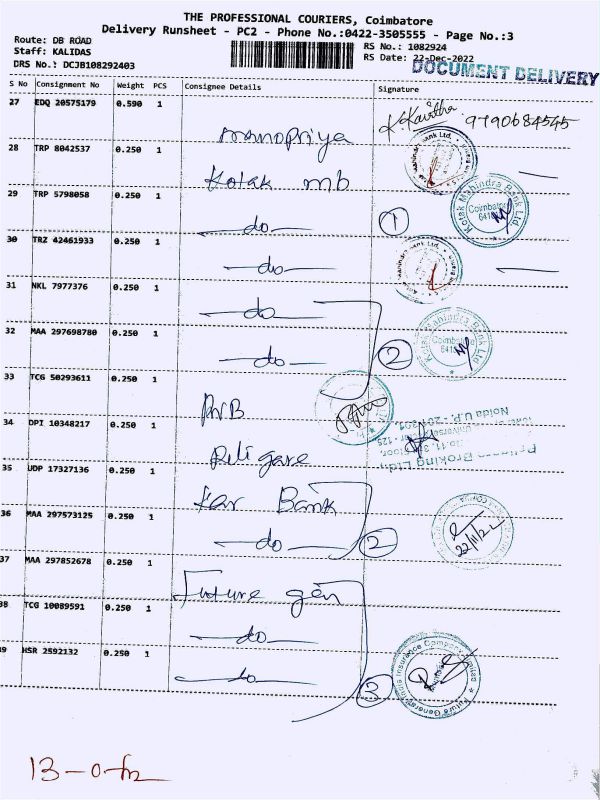 THE PROFESSIONAL COURIERS, Coimbatore
Delivery Runsheet - PC2 - Phone No.:0422-3505555 - Page No.:3
Route: DB ROAD
Staff: KALIDAS
DRS No.: DCJB108292403
RS No.: 1082924
RS Date: 22-Dec-2022
DOCUMENT DELIVERY
S No Consignment No Weight PCS Consignee Details Signature
27 EDQ 20575179 0.590 1 manopriya K.Kavitha 9790684545
28 TRP 8042537 0.250 1 Kotak mb
29 TRP 5798058 0.250 1 do 1
Kotak Mahindra Bank Ltd.
Coimbatore
30 TRZ 42461933 0.250 1 do
31 NKL 7977376 0.250 1 do
32 MAA 297698780 0.250 1 do 2
Kotak Mahindra Bank Ltd
33 TCG 50293611 0.250 1
34 DPI 10348217 0.250 1 Religare
Noida U.P.- 201301
Broking Ltd.,
35 UDP 17327136 0.250 1 Kar Bank
36 MAA 297573125 0.250 1 do 2
37 MAA 297852678 0.250 1 Future gen
38 TCG 10089591 0.250 1 do
39 HSR 2592132 0.250 1 do 3
Future Generali India Insurance Company Limited